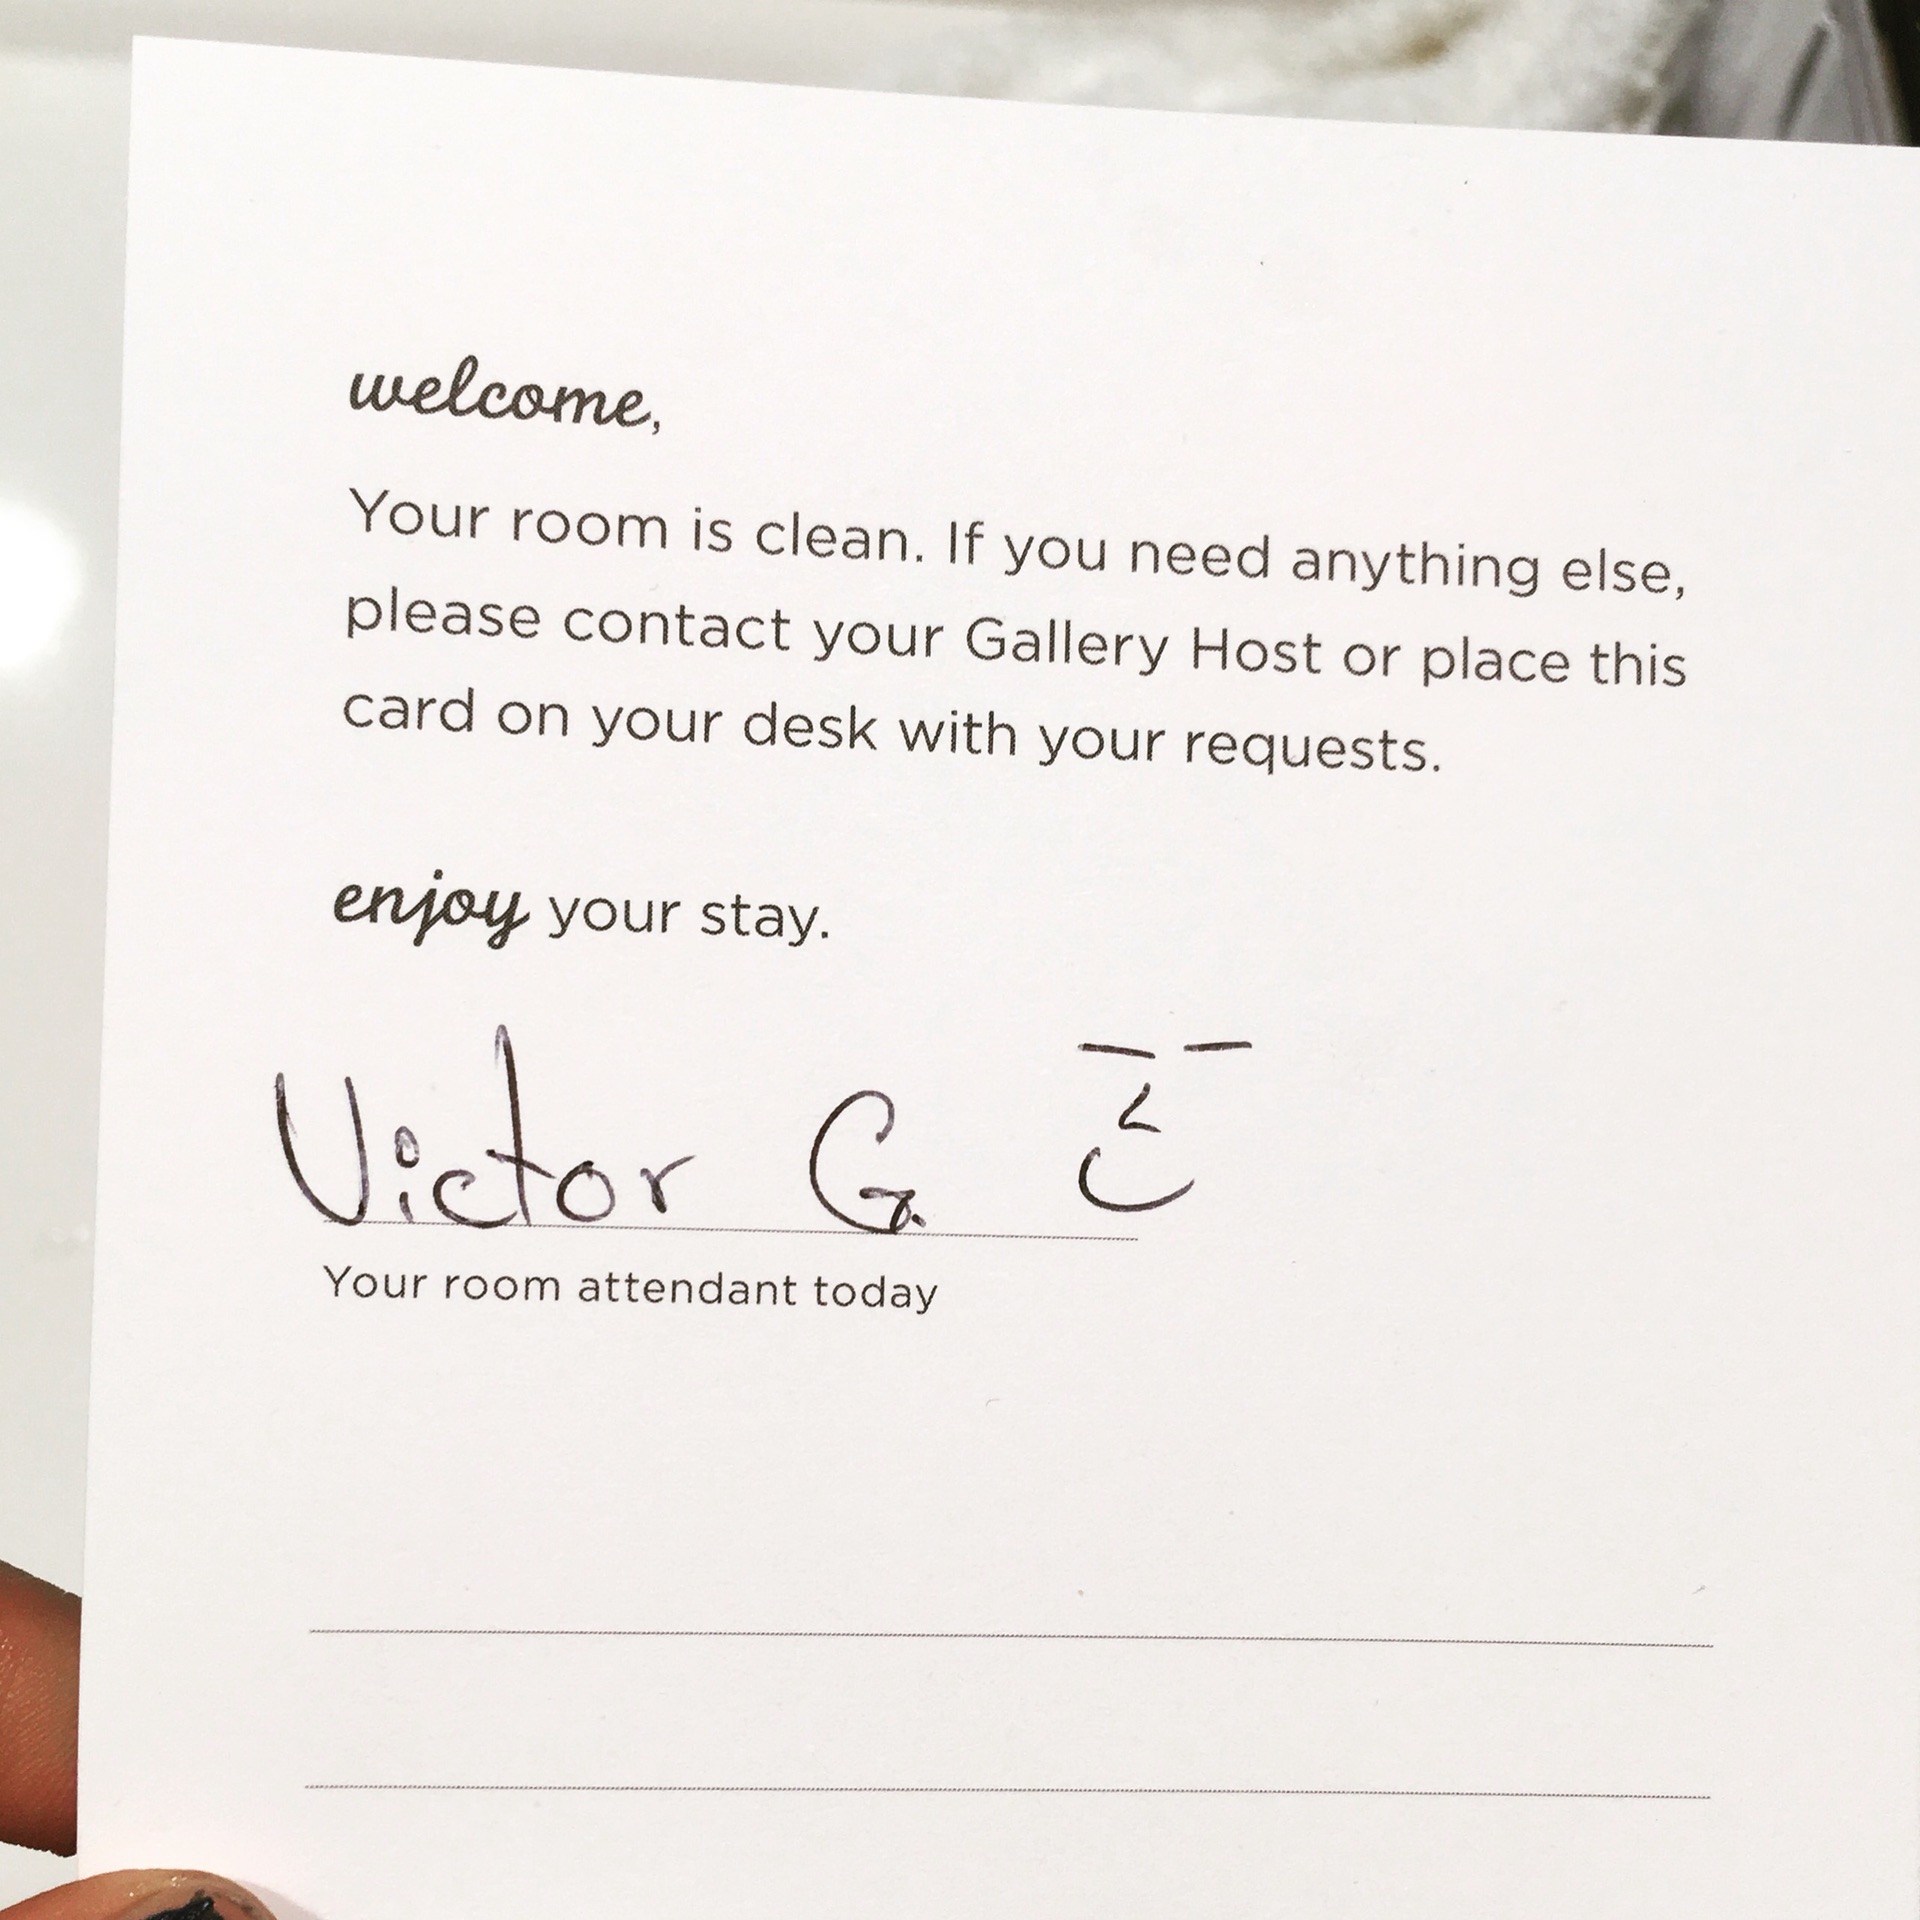 welcome,
Your room is clean. If you need anything else,
please contact your Gallery Host or place this
card on your desk with your requests.
enjoy your stay.
Victor G.
Your room attendant today